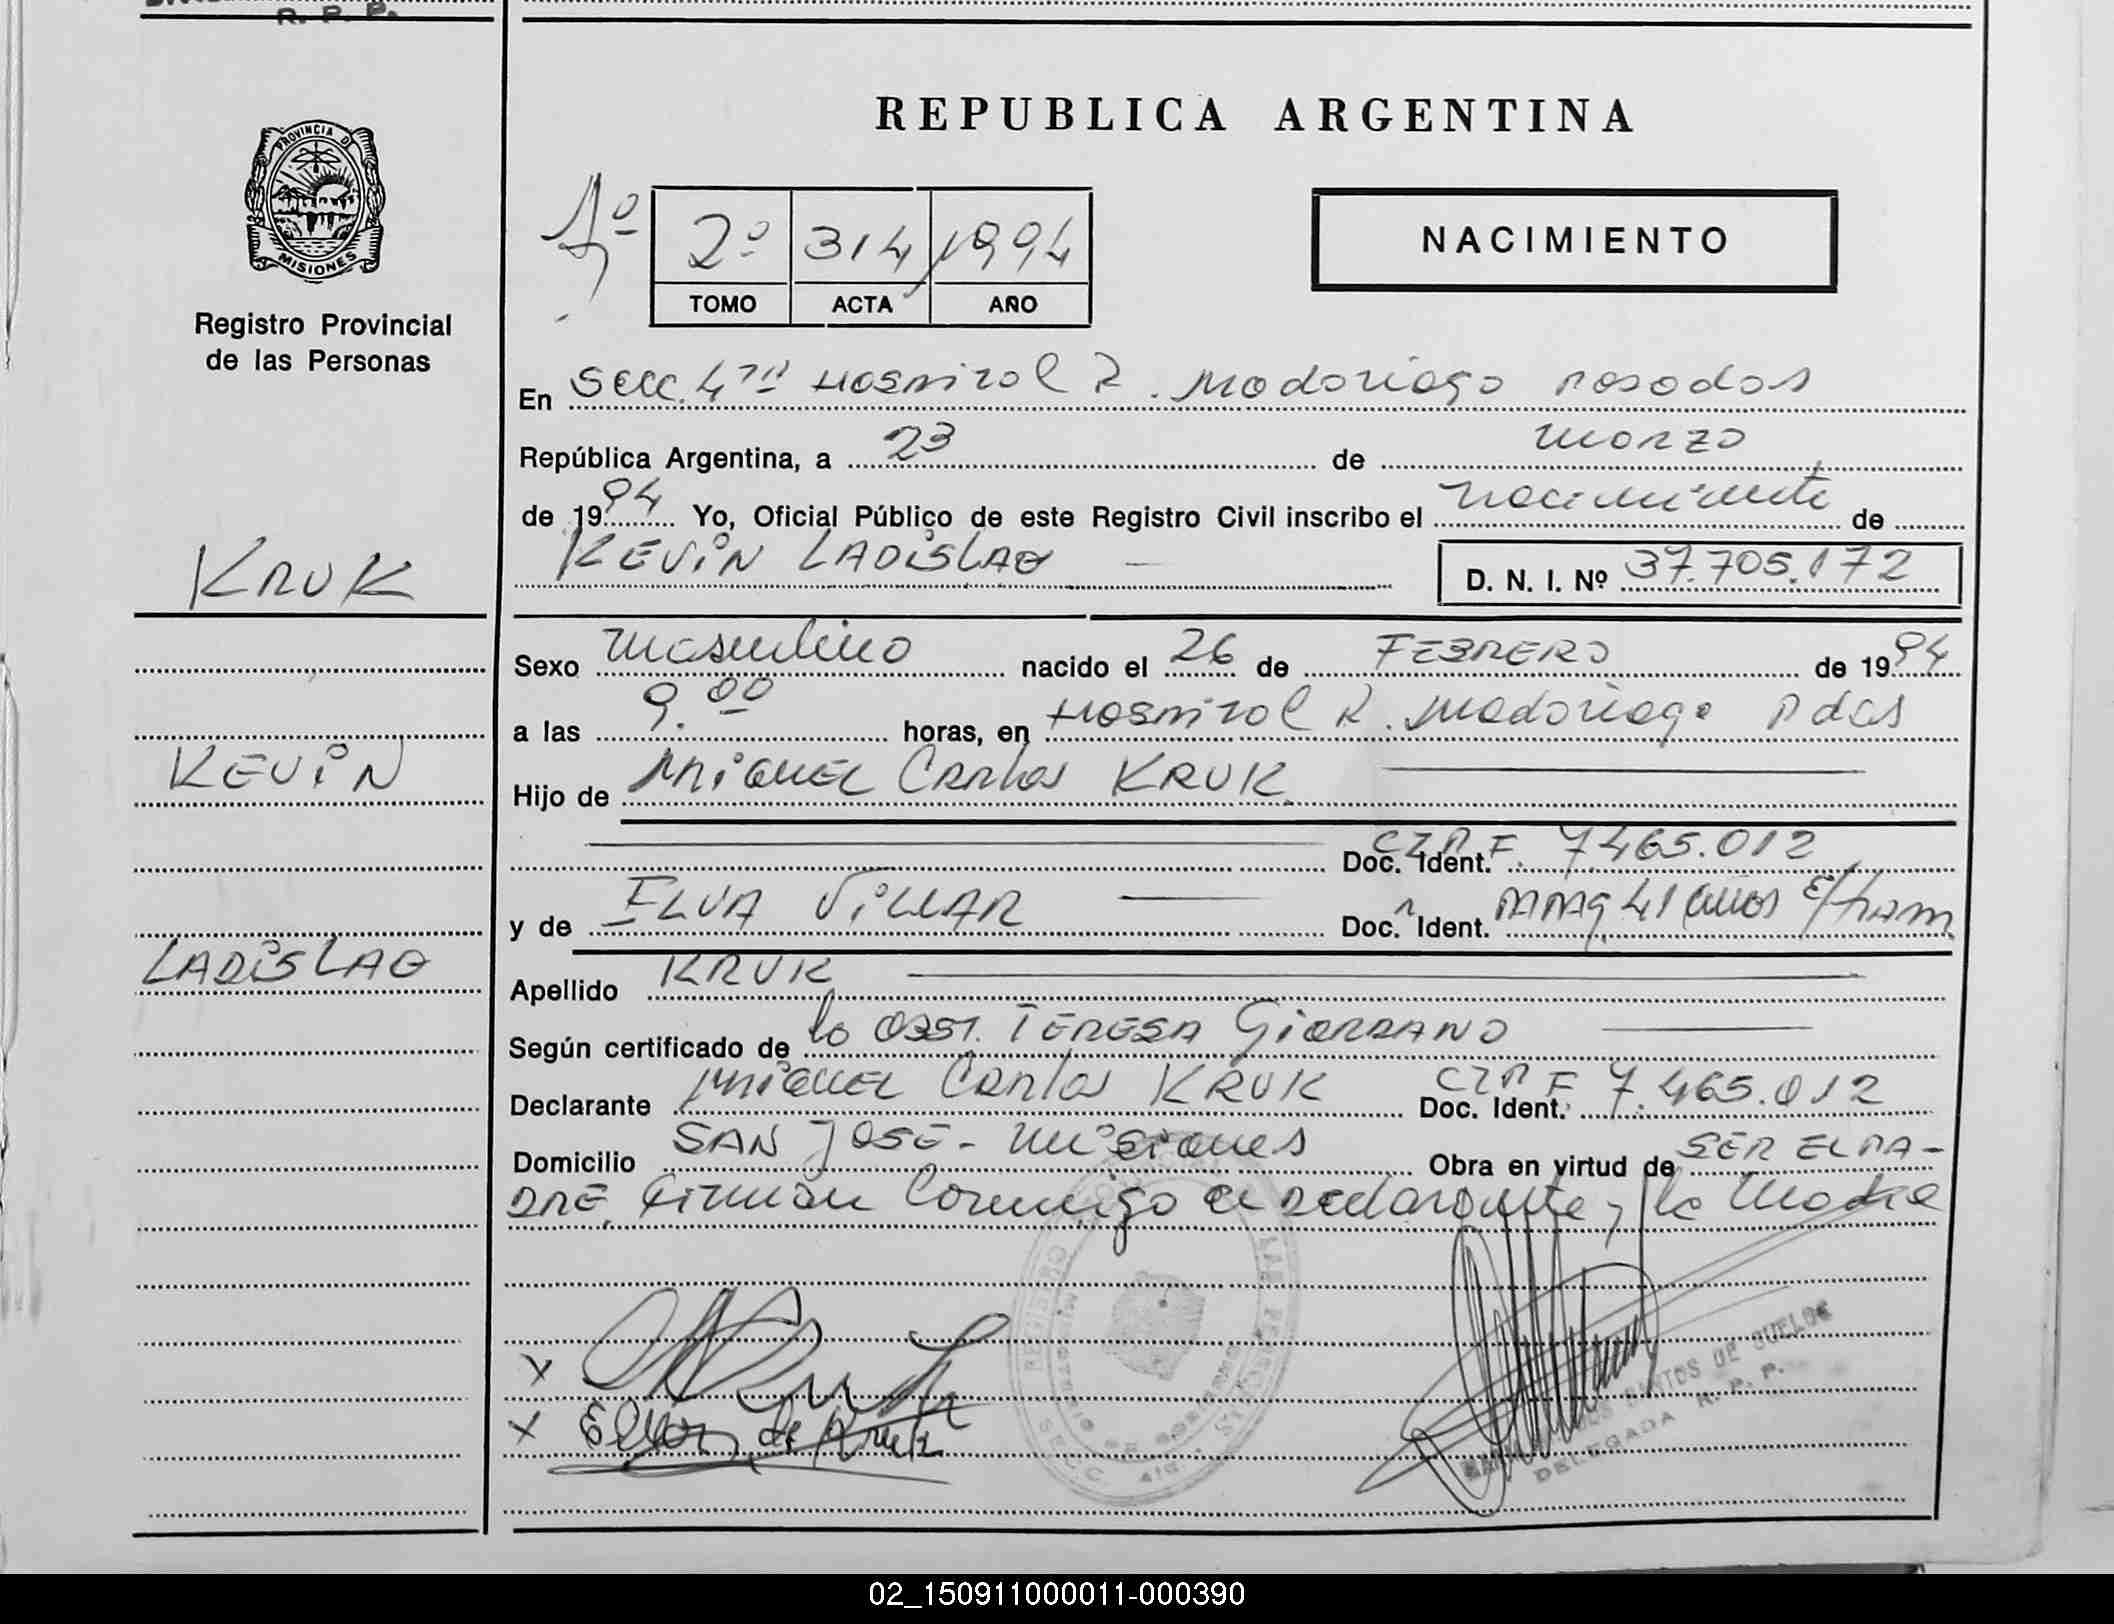 R. P. P.
REPUBLICA ARGENTINA
PROVINCIA DE
MISIONES
Registro Provincial
de las Personas
2º 314 1994
TOMO ACTA AÑO
NACIMIENTO
En Secc. 4ta Hospital R. Madariaga Posadas
República Argentina, a 23 de marzo
de 1994 Yo, Oficial Público de este Registro Civil inscribo el nacimiento de
KEVIN LADISLAO
D. N. I. Nº 37.705.172
KRUK
Sexo masculino nacido el 26 de FEBRERO de 1994
a las 9.00 horas, en Hospital R. Madariaga Pdas
KEVIN
Hijo de MIGUEL Carlos KRUK
Doc. Ident. CIP F. 7465.012
y de ELVA VILLAR Doc. Ident. 41 años
LADISLAO
Apellido KRUK
Según certificado de la OBST. TERESA GIORDANO
Declarante MIGUEL Carlos KRUK Doc. Ident. CIP F 7.465.012
Domicilio SAN JOSE - Misiones Obra en virtud de SER EL PA-
DRE. Firman Conmigo el Declarante y la Madre
X
X Elva de Kruk
SANTOS DE SUELOS
DELEGADA R. P. P.
02_150911000011-000390